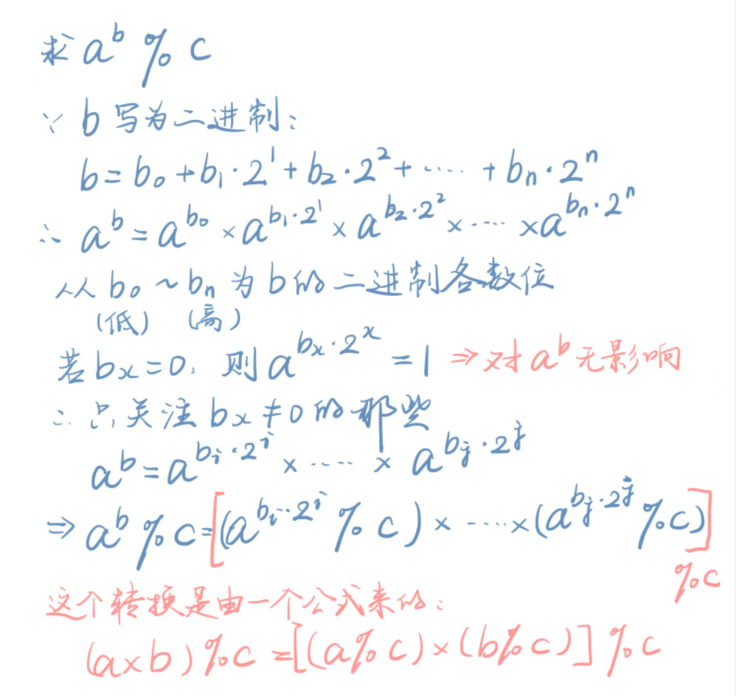 求 a^b % c
∵ b 写为二进制:
b = b₀ + b₁·2¹ + b₂·2² + ····· + bₙ·2ⁿ
∴ a^b = a^{b₀} × a^{b₁·2¹} × a^{b₂·2²} × ···· × a^{bₙ·2ⁿ}
从 b₀ ~ bₙ 为 b 的二进制各数位
(低) (高)
若 bₓ = 0, 则 a^{bₓ·2ˣ} = 1 ⇒ 对 a^b 无影响
∴ 只关注 bₓ ≠ 0 的那些
a^b = a^{bᵢ·2ⁱ} × ····· × a^{bⱼ·2ʲ}
⇒ a^b % c = [(a^{bᵢ·2ⁱ} % c) × ····· × (a^{bⱼ·2ʲ} % c)]
% c
这个转换是由一个公式来的:
(a×b) % c = [(a % c) × (b % c)] % c